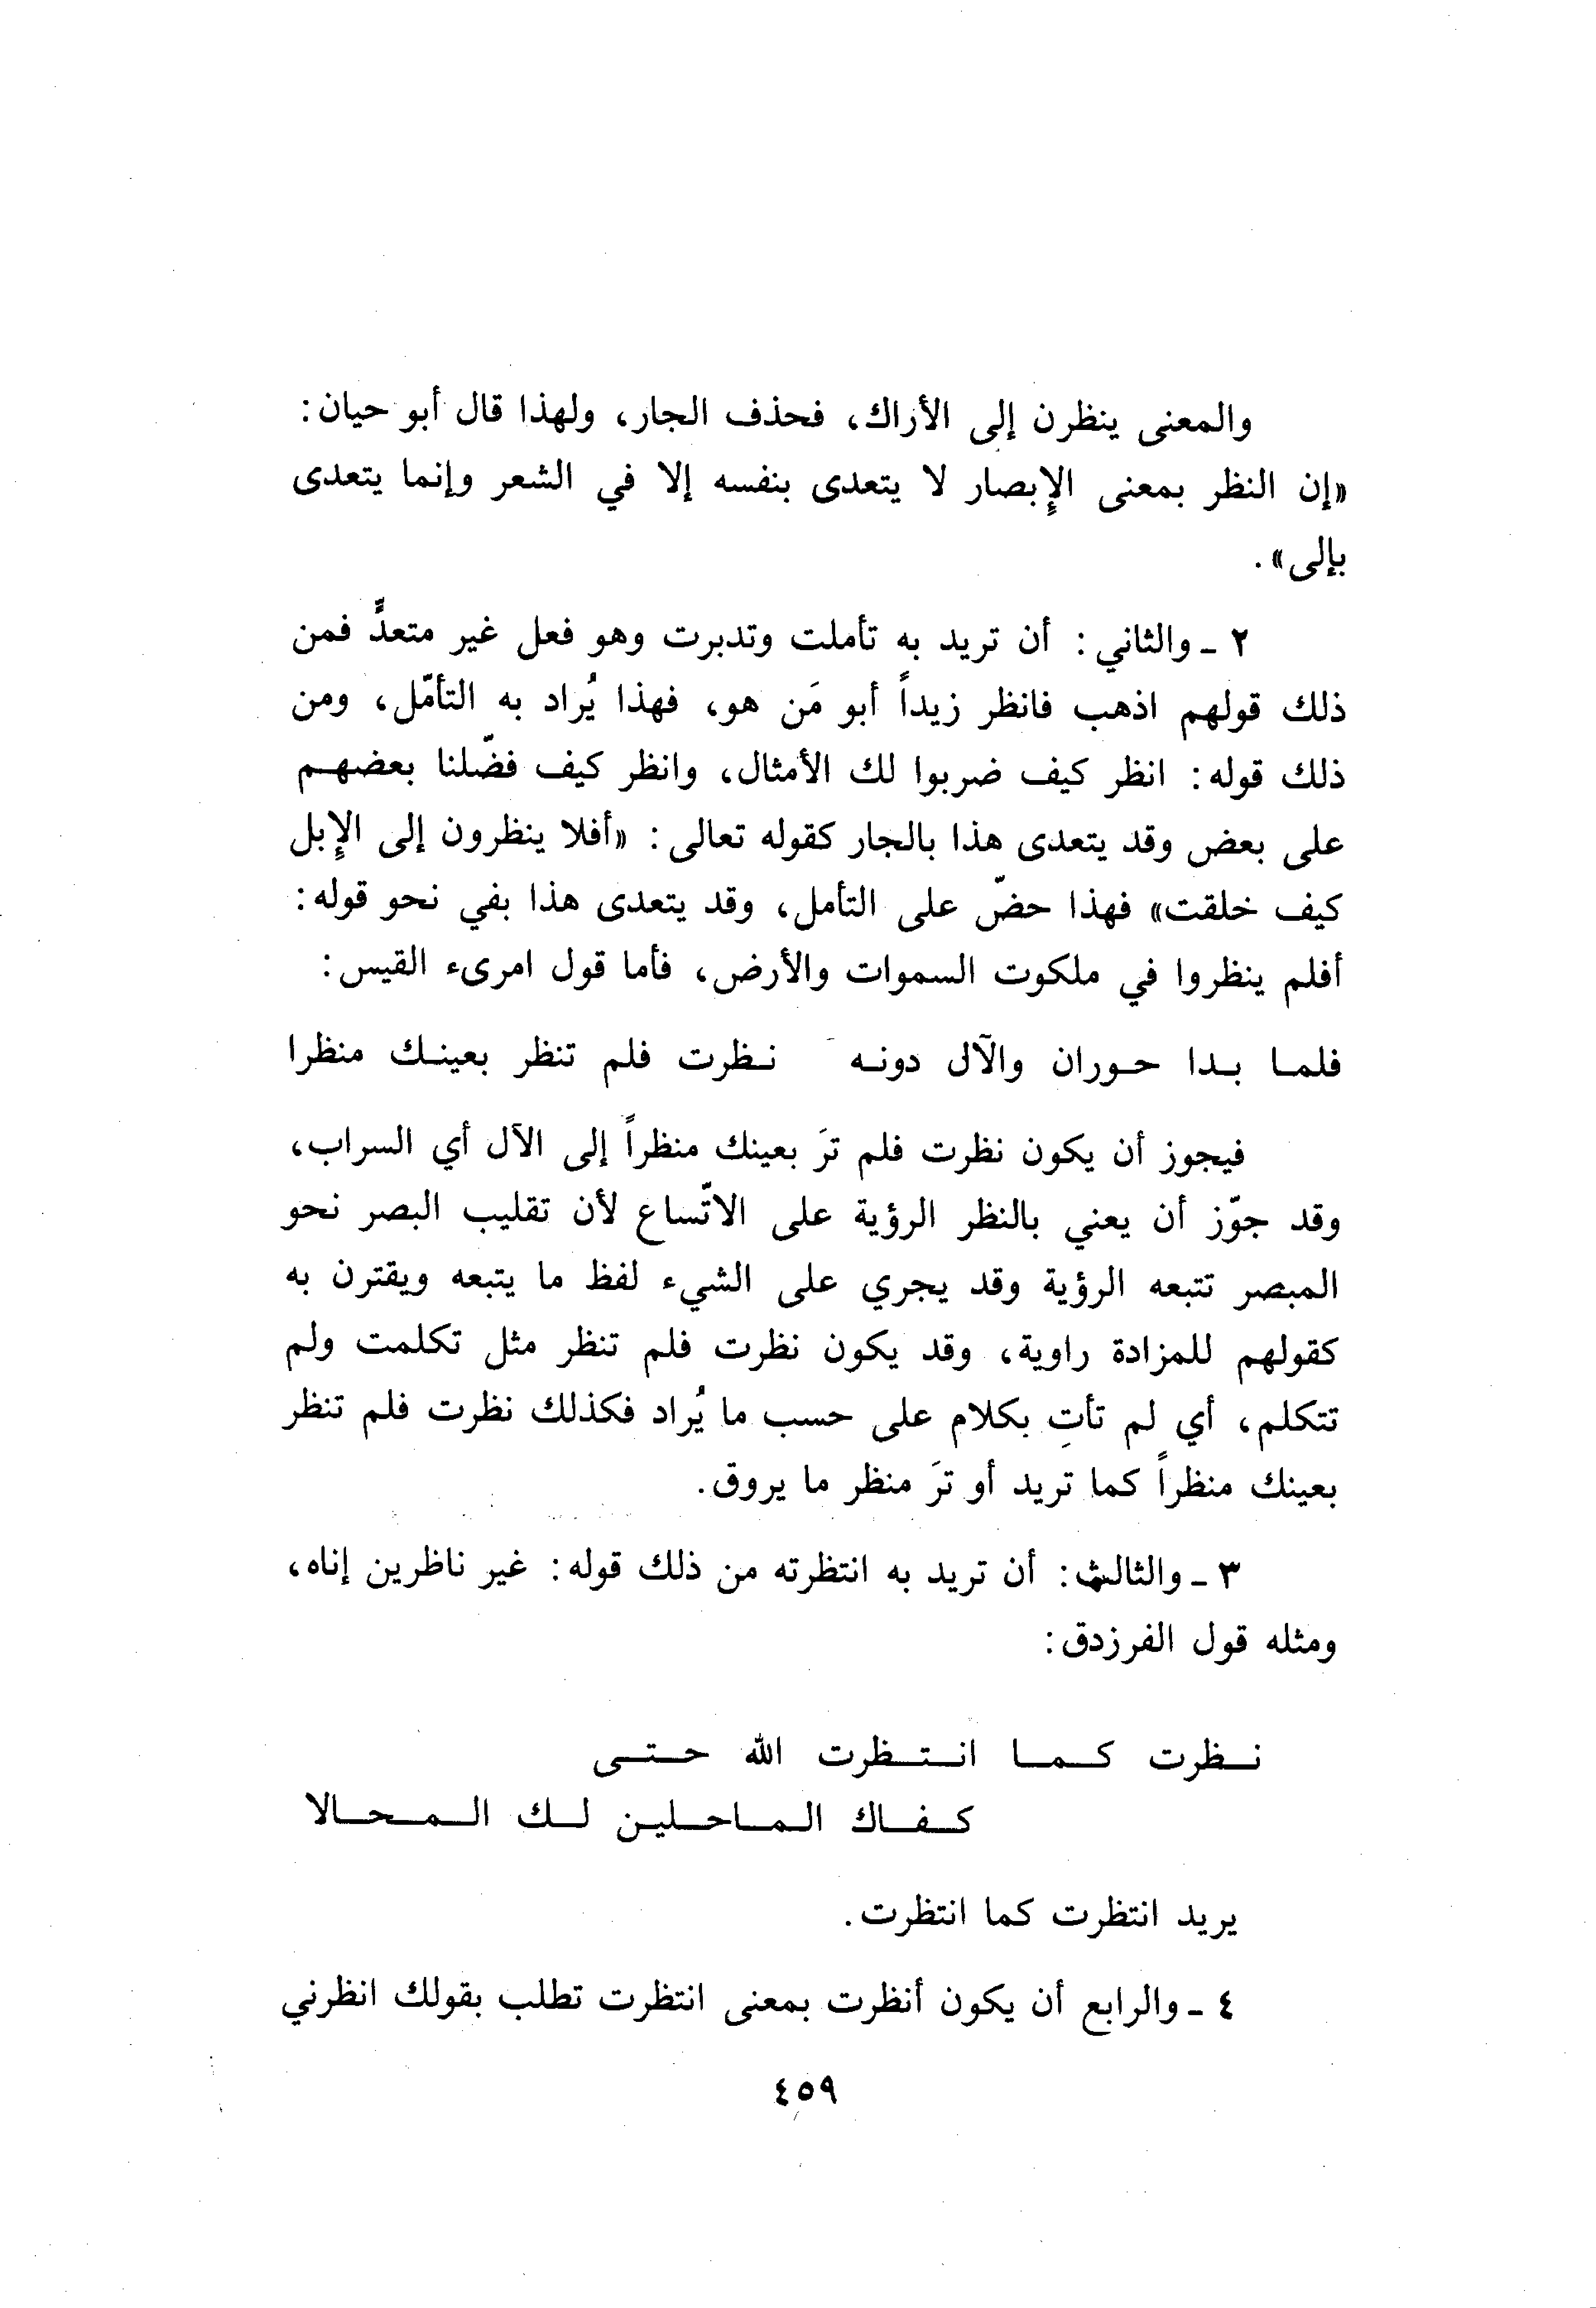 والمعنى ينظرن إلى الأراك، فحذف الجار، ولهذا قال أبو حيان:
«إن النظر بمعنى الإبصار لا يتعدى بنفسه إلا في الشعر وإنما يتعدى
بإلى».
٢ - والثاني: أن تريد به تأملت وتدبرت وهو فعل غير متعدٍّ فمن
ذلك قولهم اذهب فانظر زيداً أبو مَن هو، فهذا يُراد به التأمّل، ومن
ذلك قوله: انظر كيف ضربوا لك الأمثال، وانظر كيف فضّلنا بعضهم
على بعض وقد يتعدى هذا بالجار كقوله تعالى: «أفلا ينظرون إلى الإبل
كيف خلقت» فهذا حضّ على التأمل، وقد يتعدى هذا بفي نحو قوله:
أفلم ينظروا في ملكوت السموات والأرض، فأما قول امرىء القيس:
فلمـا بـدا حـوران والآل دونـه نـظرت فلم تنظر بعينـك منظرا
فيجوز أن يكون نظرت فلم ترَ بعينك منظراً إلى الآل أي السراب،
وقد جوّز أن يعني بالنظر الرؤية على الاتّساع لأن تقليب البصر نحو
المبصر تتبعه الرؤية وقد يجري على الشيء لفظ ما يتبعه ويقترن به
كقولهم للمزادة راوية، وقد يكون نظرت فلم تنظر مثل تكلمت ولم
تتكلم، أي لم تأتِ بكلام على حسب ما يُراد فكذلك نظرت فلم تنظر
بعينك منظراً كما تريد أو ترَ منظر ما يروق.
٣ - والثالث: أن تريد به انتظرته من ذلك قوله: غير ناظرين إناه،
ومثله قول الفرزدق:
نـظرت كـمـا انـتـظرت الله حـتـى
كـفـاك الـماحـلين لـك الـمـحـالا
يريد انتظرت كما انتظرت.
٤ - والرابع أن يكون أنظرت بمعنى انتظرت تطلب بقولك انظرني
٤٥٩